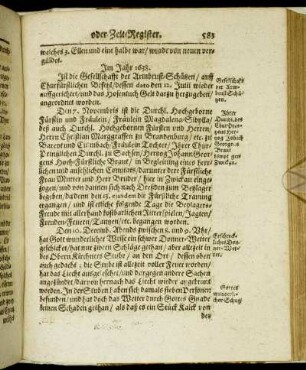 oder Zeit-Register. 583
welches 3. Ellen und eine halbe war/ wurde von neuen ver-
güldet.
Im Jahr 1638.
Ist die Gesellschafft der Armbrust-Schützen/ auff
Churfürstlichen Befehl/ dessen dato den 12. Julii wieder
auffgerichtet/ und das Hosentuch Geld darzu herzugeben/
angeordnet worden.
Den 7. Novembris ist die Durchl. Hochgeborne
Fürstin und Fräulein/ Fräulein Magdalena-Sibylla/
des auch Durchl. Hochgebornen Fürsten und Herrn/
Herrn Christian Marggraffen zu Brandenburg/ etc. zu
Bareut und Culmbach/ Fräulein Tochter/ Ihrer Chur-
Printzlichen Durchl. zu Sachsen/ Hertzog Johann Georgens
Hoch-Fürstliche Braut/ in Begleitung eines herr-
lichen und ansehnlichen Comitats/ darunter dero Fürstliche
Frau Mutter und Herr Bruder/ hier in Zwickau einge-
zogen/ und von dannen sich nach Dresden zum Beylager
begeben/ da den 13. die Fürstliche Trauung
ergangen/ und ist etliche folgende Tage die Beylagers-
Freude mit allerhand kostbarlichen Ritterspielen/ Jagten/
Freuden-Feuern/ Täntzen/ etc. begangen worden.
Den 10. Decemb. Abends zwischen 8. und 9. Uhr/
hat Gott wunderlicher Weise ein schwer Donner-Wetter
geschicket/ hat nur zween Schläge gethan/ aber allezeit in
des Obern Kirchners Stube/ an den Ort/ dessen oben
auch gedacht; die Stube ist allezeit voller Feuer worden/
hat das Liecht ausgelescht und dergegen andere Sachen
angezündet/ darvon hernach das Liecht wieder angebrant
worden. In der Stuben haben sich damals sieben Personen
befunden/ und hat doch das Wetter durch Gottes Gnade
keinen Schaden gethan/ als daß es ein Stück Kalck von
der
Gesellschafft
der Arm-
brust-Schü-
tzen.
Ihrer
Durchl. des
Chur-Print-
zen Her-
tzog Johann
Georgen
Braut
kömpt gen
Zwickau.
Erschreck-
liches Don-
ner-Wet-
ter.
Gottes
wunderli-
cher Schutz